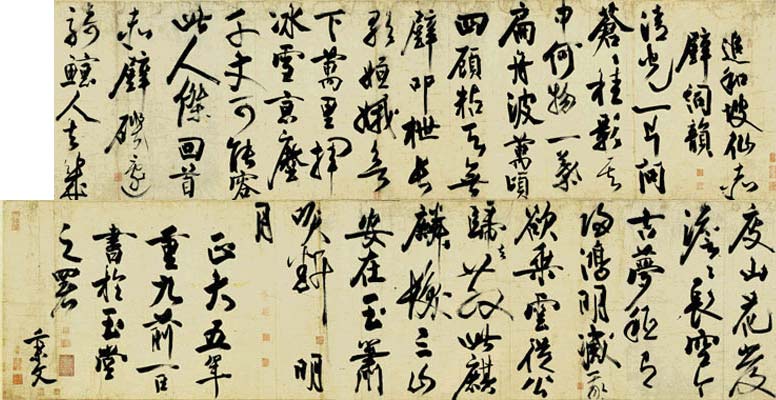 追和坡仙赤
壁詞韻
清光一片問
蒼々桂影其
中何物一葉
扁舟波萬頃
四顧粘天無
壁叩枻長
歌姮娥欲
下萬里揮
冰雪京塵
千丈可能容
此人傑回首
赤壁磯邊
騎鯨人去幾
度山花發
澹々長空今
古夢秪有
歸鴻明滅我
欲乘雲從公
歸去散此麒
麟髮三山
安在玉簫
吹斷明
月
正大五年
重九前一日
書於玉堂
之署
秉文